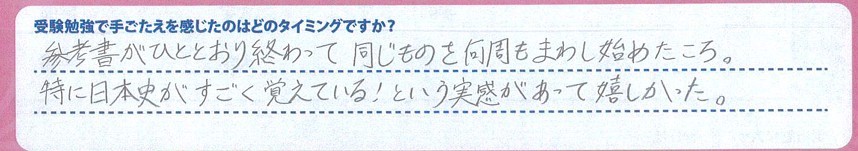 受験勉強で手ごたえを感じたのはどのタイミングですか?
参考書がひととおり終わって同じものを何周もまわし始めたころ。
特に日本史がすごく覚えている!という実感があって嬉しかった。